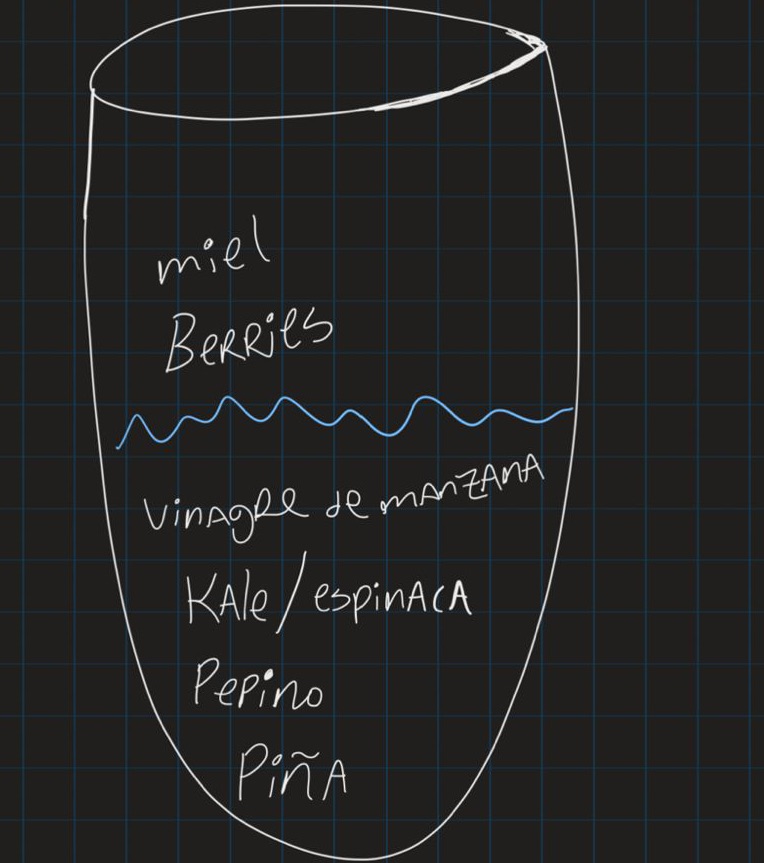 miel
Berries
Vinagre de manzana
Kale/espinaca
Pepino
Piña